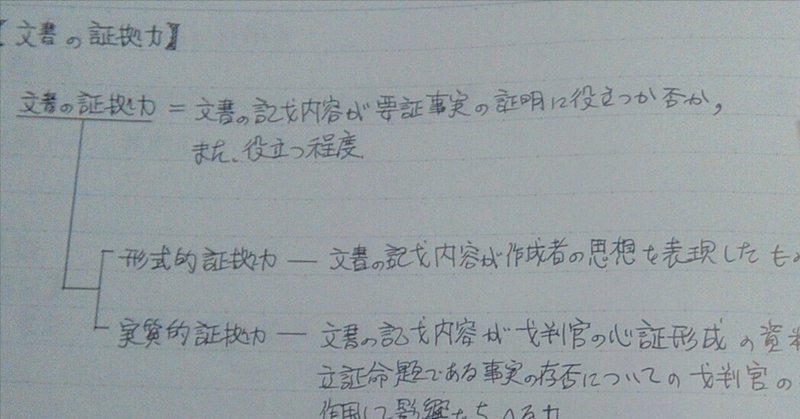 【文書の証拠力】
文書の証拠力 = 文書の記戈内容が要証事実の証明に役立つか否か,
また、役立つ程度.
形式的証拠力 — 文書の記戈内容が作成者の思想を表現したもの
実質的証拠力 — 文書の記戈内容が戈判官の心証形成の資料
立証命題である事実の存否についての戈判官の
作用して影響を与へる力